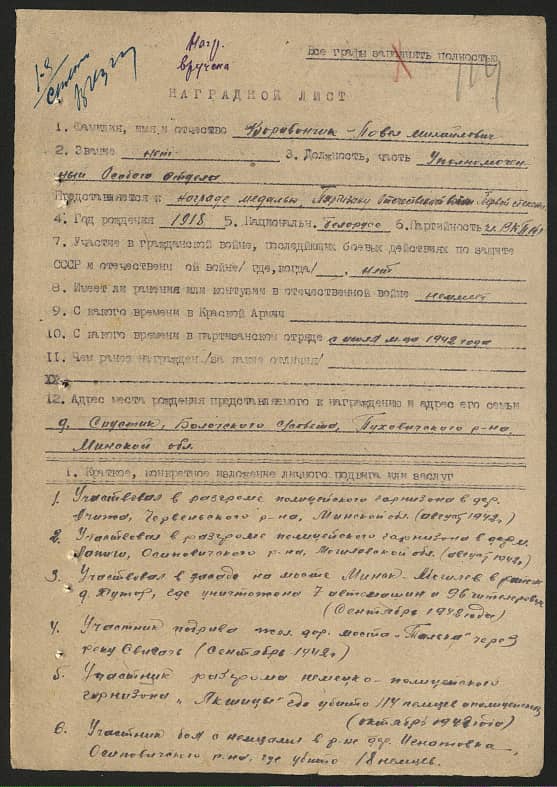 Нагр.
вручена
Все графы заполнять полностью
НАГРАДНОЙ ЛИСТ
1. Фамилия, имя и отчество Воравончик Павел Михайлович
2. Звание нет 3. Должность, часть Уполномочен-
ный Особого отдела
Представляется к награде медалью Партизану Отечественной войны Первой степени
4. Год рождения 1918 5. Национальн. Белорус 6. Партийность
7. Участие в гражданской войне, последующих боевых действиях по защите
СССР и отечествени ой войне/где, когда/ нет
8. Имеет ли ранения или контузии в отечественной войне неимеет
9. С какого времени в Красной Армии
10. С какого времени в партизанском отряде с июля м-ца 1942 года
11. Чем ранее награжден/за какие отличия/
12. Адрес места рождения представляемого к награждению и адрес его семьи
д. Слустик, Болочского с/совета, Пуховичского р-на,
Минской обл.
1. Краткое, конкретное изложение личного подвига или заслуг
1. Участвовал в разгроме полицейского гарнизона в дер.
Червеньского р-на, Минской обл. (август 1942г.)
2. Участвовал в разгроме полицейского гарнизона в дер.
Лапичи, Осиповичского р-на, Могилевской обл. (август 1942г.)
3. Участвовал в засаде на шоссе Минск-Могилев в районе
д. где уничтожено 7 автомашин и 96 гитлеровцев
(Сентябрь 1942 года)
4. Участник подрыва жел. дор. моста "Талька" через
реку Свислочь (Сентябрь 1942г.)
5. Участник разгрома немецко-полицейского
гарнизона "Якшицы" где убито 114 немцев и полицейских
(октябрь 1942 года)
6. Участник боя с немцами в р-не дер. Игнатовка,
Осиповичского р-на, где убито 18 немцев.